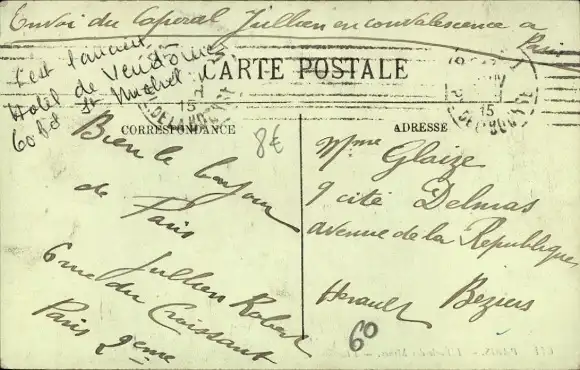 Envoi du Caporal Jullien en convalescence a
Paris
C'est l'ancien
Hotel de Vendôme
60 Bd St Michel
CARTE POSTALE
15
15
CORRESPONDANCE
ADRESSE
8€
Bien le bonjour
de Paris
Jullien Robert
6 rue du Croissant
Paris 2eme
Mme Glaize
9 cité Delmas
avenue de la Republique
Herault Beziers
60